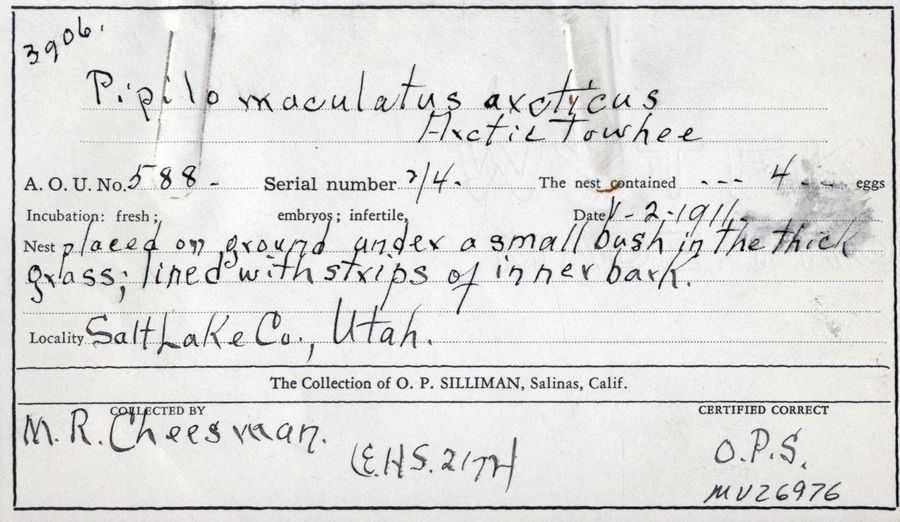 3906.
Pipilo maculatus arcticus
Arctic Towhee
A. O. U. No. 588 - Serial number 2/4. The nest contained --- 4 --- eggs
Incubation: fresh; embryos; infertile, Date V-2-1911
Nest placed on ground under a small bush in the thick
grass; lined with strips of inner bark.
Locality Salt Lake Co., Utah.
The Collection of O. P. SILLIMAN, Salinas, Calif.
COLLECTED BY CERTIFIED CORRECT
M. R. Cheesman. O.P.S.
MV26976